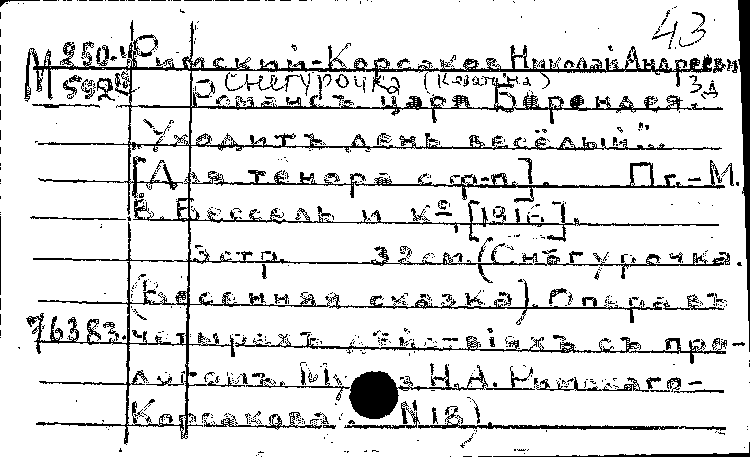 43
М 250-4 Римский-Корсаков Николай Андреевич
592 Снегурочка (Каватина) 3д
Романсъ царя Берендея.
„Уходитъ день весёлый"...
[Для тенора с ф-п.]. Пг.-М.
В. Бессель и кº, [1916].
3 стр. 32 см. (Снѣгурочка.
(Весенняя сказка). Опера въ
76383. четырехъ дѣйствіяхъ съ про-
логомъ. Муз. Н.А. Римскаго-
Корсакова. N 18).